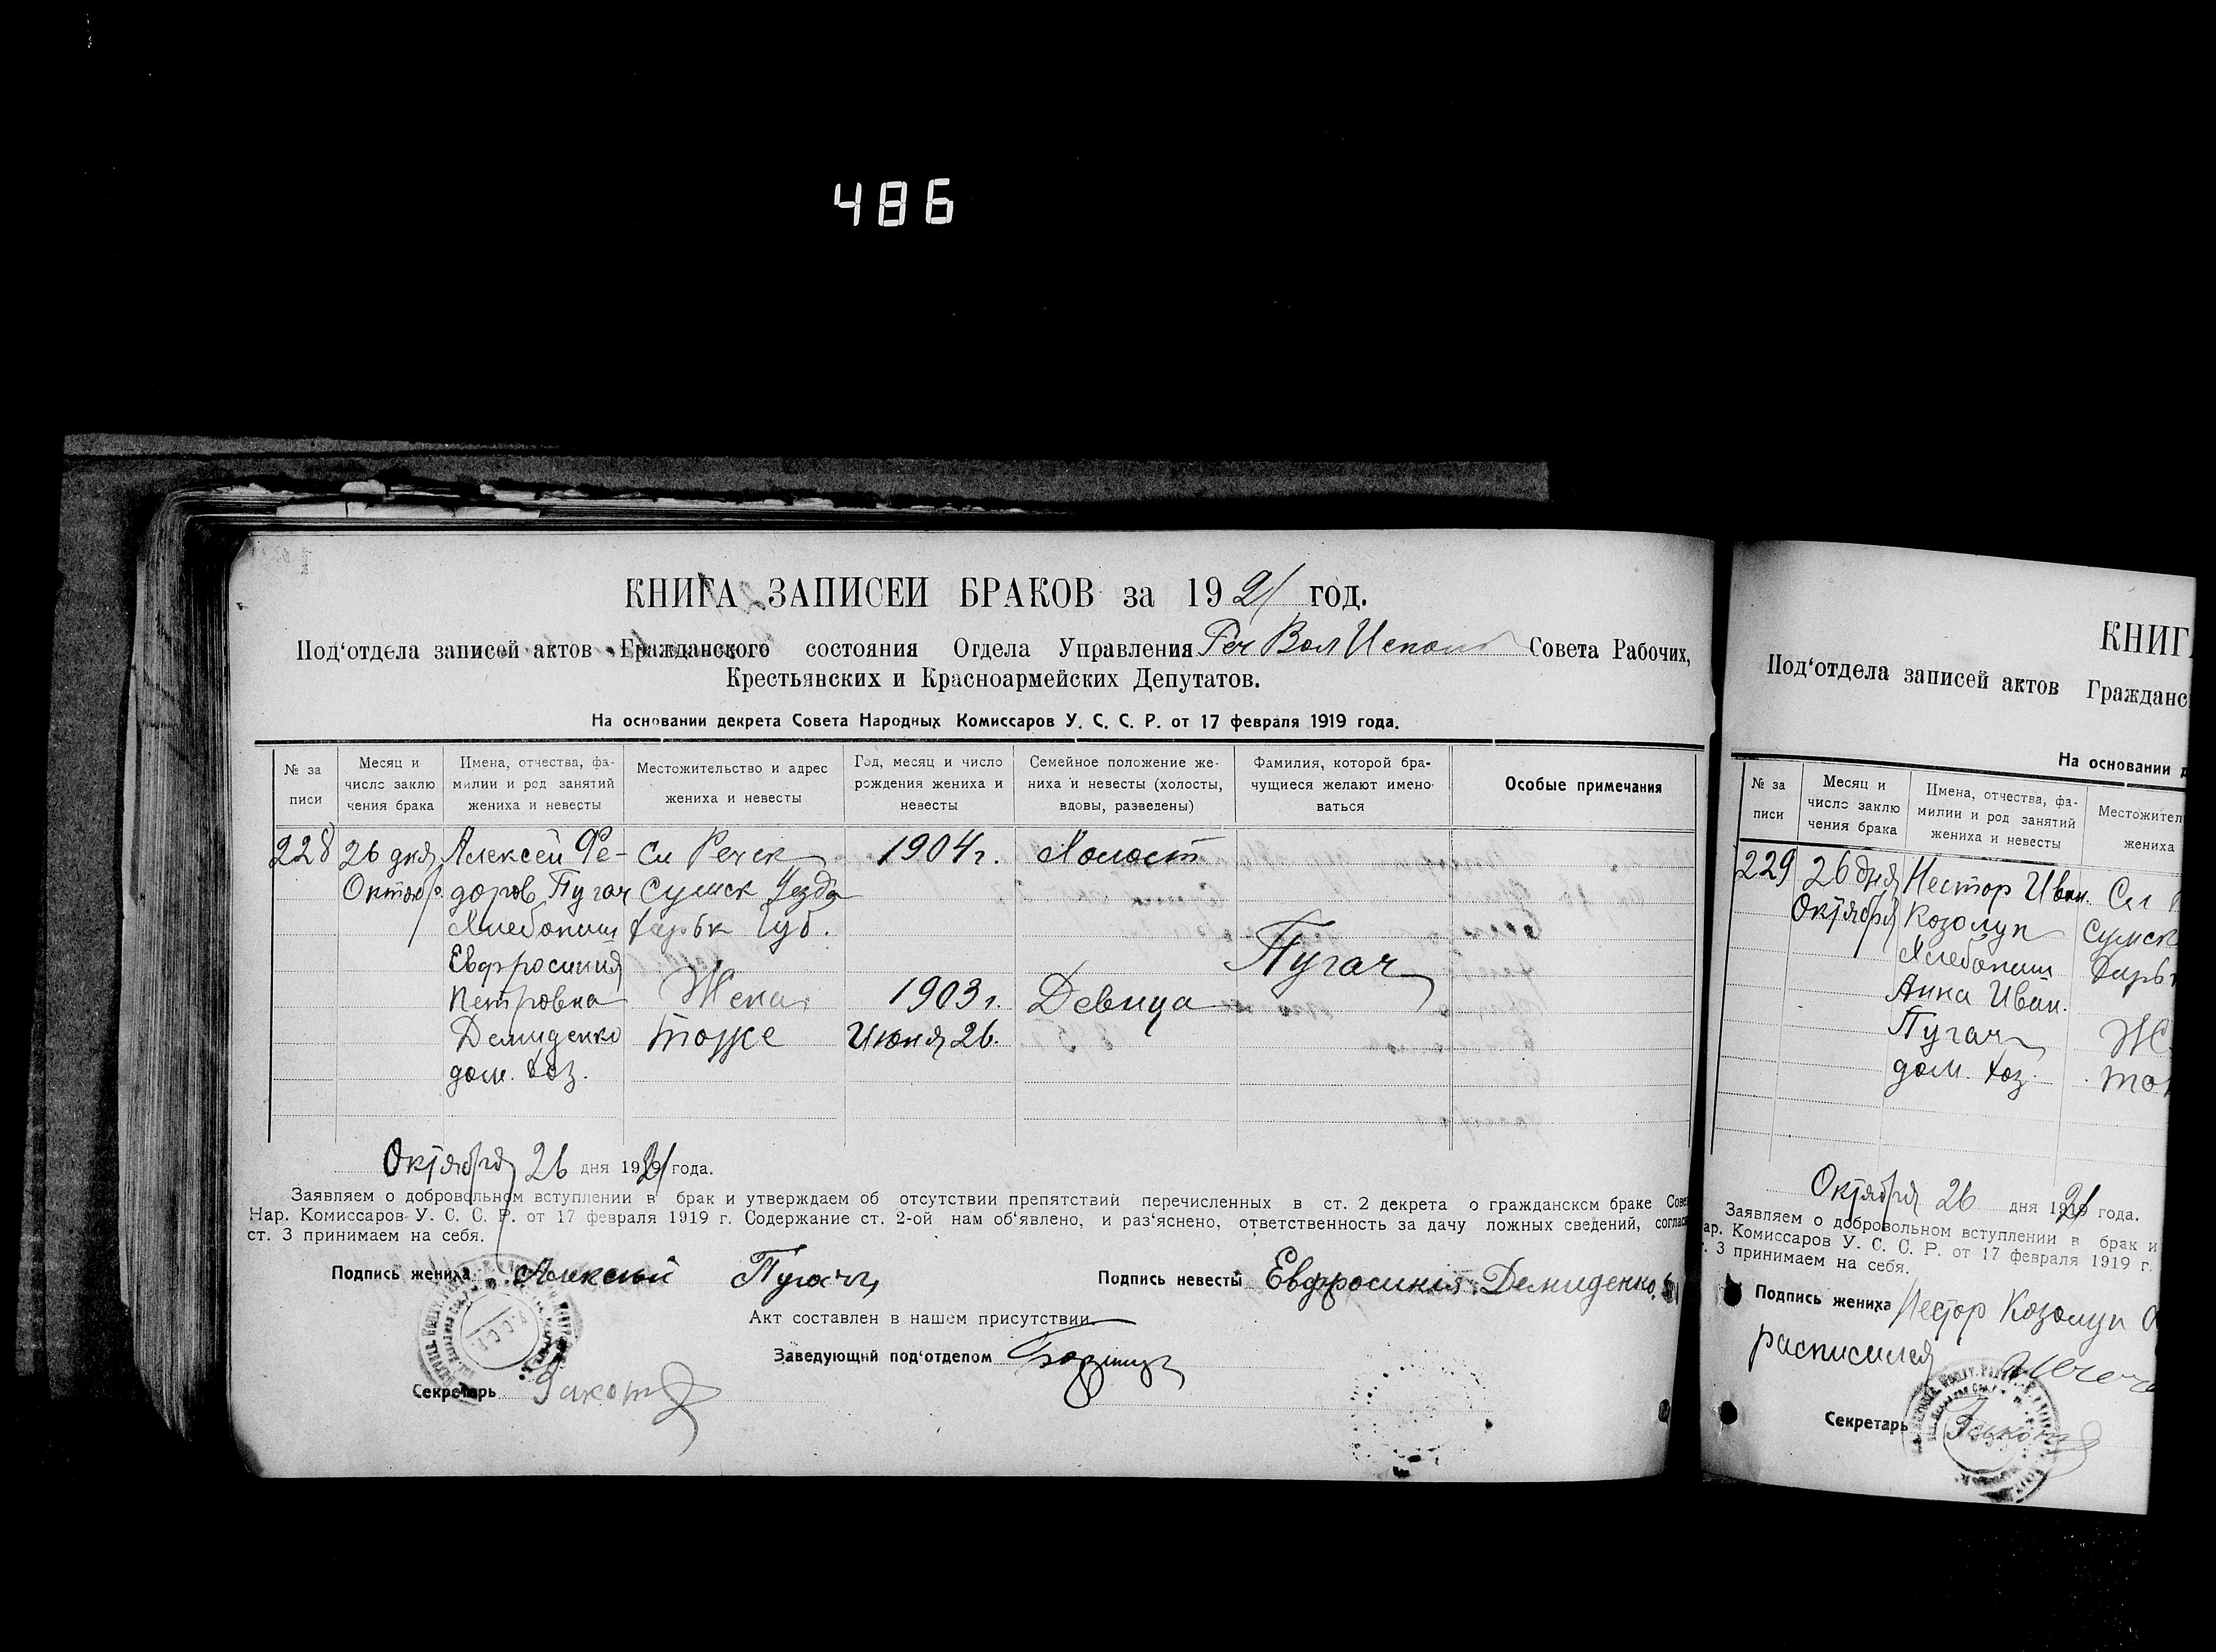 486
КНИГА ЗАПИСЕЙ БРАКОВ за 1921 год.
Под‘отдела записей актов Гражданского состояния Отдела Управления Реч Вол Испол Совета Рабочих,
Крестьянских и Красноармейских Депутатов.
На основании декрета Совета Народных Комиссаров У. С. С. Р. от 17 февраля 1919 года.
№ за писи
Месяц и число заклю чения брака
Имена, отчества, фа- милии и род занятий жениха и невесты
Местожительство и адрес жениха и невесты
Год, месяц и число рождения жениха и невесты
Семейное положение же- ниха и невесты (холосты, вдовы, разведены)
Фамилия, которой бра- чущиеся желают имено- ваться
Особые примечания
228 26 дня Алексей Фе- Сл Речек 1904 г. Холост
Октябр. доров Пугач Сумск Уезда
Хлебопаш Харьк Губ.
Евфросиния Пугач
Петровна Жена 1903 г. Девица
Демиденко тоже Июня 26.
дом. хоз.
Октября 26 дня 1921 года.
Заявляем о добровольном вступлении в брак и утверждаем об отсутствии препятствий перечисленных в ст. 2 декрета о гражданском браке Сове
Нар. Комиссаров У. С. С. Р. от 17 февраля 1919 г. Содержание ст. 2-ой нам об‘явлено, и раз‘яснено, ответственность за дачу ложных сведений, соглас
ст. 3 принимаем на себя.
Подпись жениха Алексей Пугачъ Подпись невесты Евфросиния Демиденко.
Акт составлен в нашем присутствии.
Заведующий под‘отделом
Секретарь
КНИГ
Под‘отдела записей актов Гражданс
На основании д
№ за писи
Месяц и число заклю чения брака
Имена, отчества, фа- милии и род занятий жениха и невесты
Местожител жениха
229 26 дня Нестор Иван. Сл
Октября Козолуп Сумск
Хлебопаш Харьк
Анна Иван.
Пугач Ж
дом. хоз. то
Октября 26 дня 1921 года.
Заявляем о добровольном вступлении в брак и
ар. Комиссаров У. С. С. Р. от 17 февраля 1919 г.
. 3 принимаем на себя.
Подпись жениха Нестор Козолуп
расписался
Секретарь